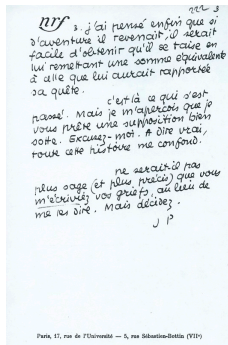 nrf
222 3
3. j'ai pensé enfin que si
d'aventure il revenait, il serait
facile d'obtenir qu'il se taise en
lui remettant une somme équivalente
à celle que lui aurait rapportée
sa quête.
c'est là ce qui s'est
passé. Mais je m'aperçois que je
vous prête une supposition bien
sotte. Excusez-moi. A dire vrai,
toute cette histoire me confond.
ne serait-il pas
plus sage (et plus précis) que vous
m'écriviez vos griefs, au lieu de
me les dire. Mais décidez.
J P
Paris, 17, rue de l'Université — 5, rue Sébastien-Bottin (VIIe)